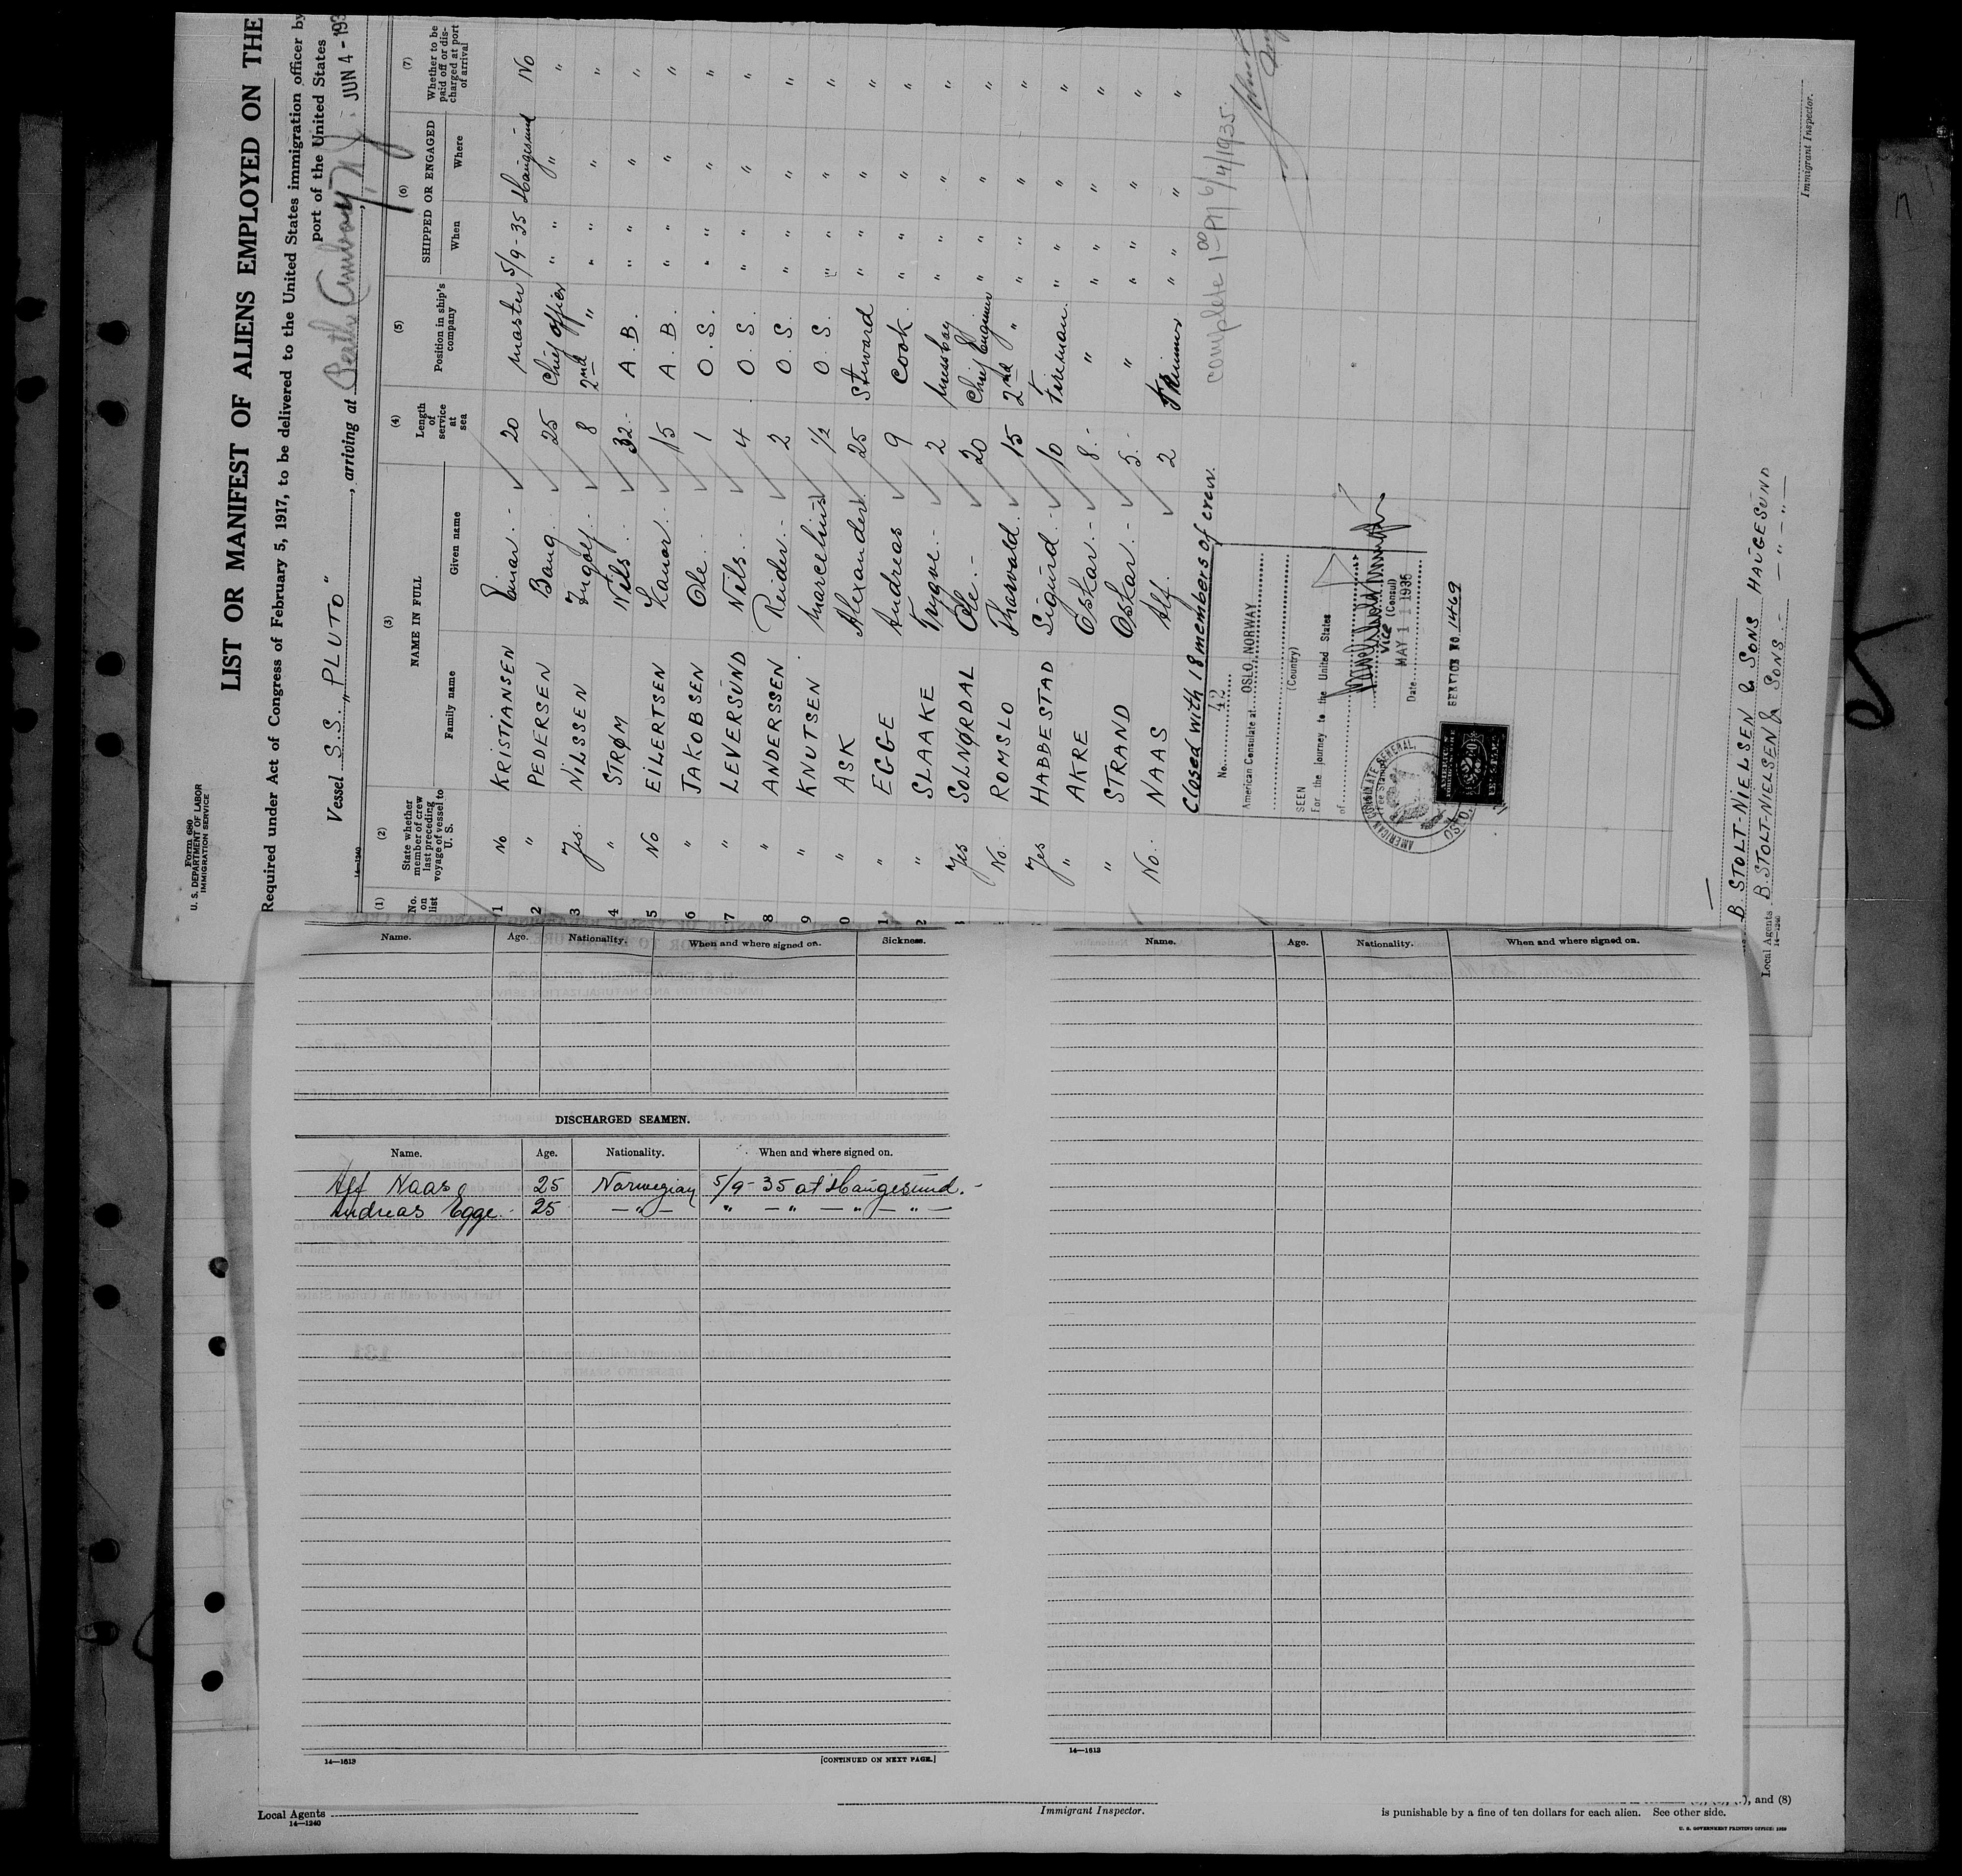 Form 680
U. S. DEPARTMENT OF LABOR
IMMIGRATION SERVICE
LIST OR MANIFEST OF ALIENS EMPLOYED ON THE
Required under Act of Congress of February 5, 1917, to be delivered to the United States immigration officer by
port of the United States
Vessel S.S. „PLUTO", arriving at Perth Amboy, N.J. JUN 4 - 193
14—1240
(1) (2) (3) (4) (5) (6) (7)
No. on list
State whether member of crew last preceding voyage of vessel to U. S.
NAME IN FULL
Family name Given name
Length of service at sea
Position in ship's company
SHIPPED OR ENGAGED
When Where
Whether to be paid off or discharged at port of arrival
1 No KRISTIANSEN Einar. - 20 Master 5/9-35 Haugesund No
2 " PEDERSEN Bang. 25 Chief Officer " " " "
3 Yes. NILSSEN Ingolf. - 8 2nd " " " " "
4 " STRØM Nils. 32.- A. B. " " " "
5 No EILERTSEN Kanar. 15 A. B. " " " "
6 " JAKOBSEN Ole. 1 O. S. " " " "
7 " LEVERSUND Nils. 4 O. S. " " " "
8 " ANDERSSEN Reidar. - 2 O. S. " " " "
9 " KNUTSEN. Marcelius 1/2 O. S. " " " "
0 " ASK Alexander. 25 Steward " " " "
1 " EGGE Andreas 9 Cook. " " " "
2 " SLAAKE Trygve. - 2 Messboy " " " "
Yes SOLNØRDAL Ole. - 20 Chief Engineer " " " "
No. ROMSLO Thorvald. 15 2nd " " " " "
Yes HABBESTAD Sigurd. - 10 Fireman. " " " "
" AKRE Oskar. - 8.- " " " " "
" STRAND Oskar. - 5.- " " " " "
No. NAAS Alf. 2 Trimmer " " " "
Closed with 18 members of crew.
complete 1 00 PM 6/4/1935.
No. 42
American Consulate at OSLO, NORWAY
(Country)
SEEN
For the journey to the United States
of
Vice (Consul)
Date MAY 11 1935
AMERICAN CONSULATE GENERAL,
Fee Stamp
OSLO
SERVICE NO 1469
B STOLT-NIELSEN & SONS HAUGESUND
Local Agents B. STOLT-NIELSEN & SONS - — " — " —
14—1240
Immigrant Inspector.
Name. Age. Nationality. When and where signed on. Sickness.
DISCHARGED SEAMEN.
Name. Age. Nationality. When and where signed on.
Alf Naas 25 Norwegian 5/9-35 at Haugesund. -
Andreas Egge. - 25 — " — " — " — " — " —
14—1613
[CONTINUED ON NEXT PAGE.]
Name. Age. Nationality. When and where signed on.
14—1613
Local Agents
14—1240
Immigrant Inspector.
), and (8)
is punishable by a fine of ten dollars for each alien. See other side.
U. S. GOVERNMENT PRINTING OFFICE: